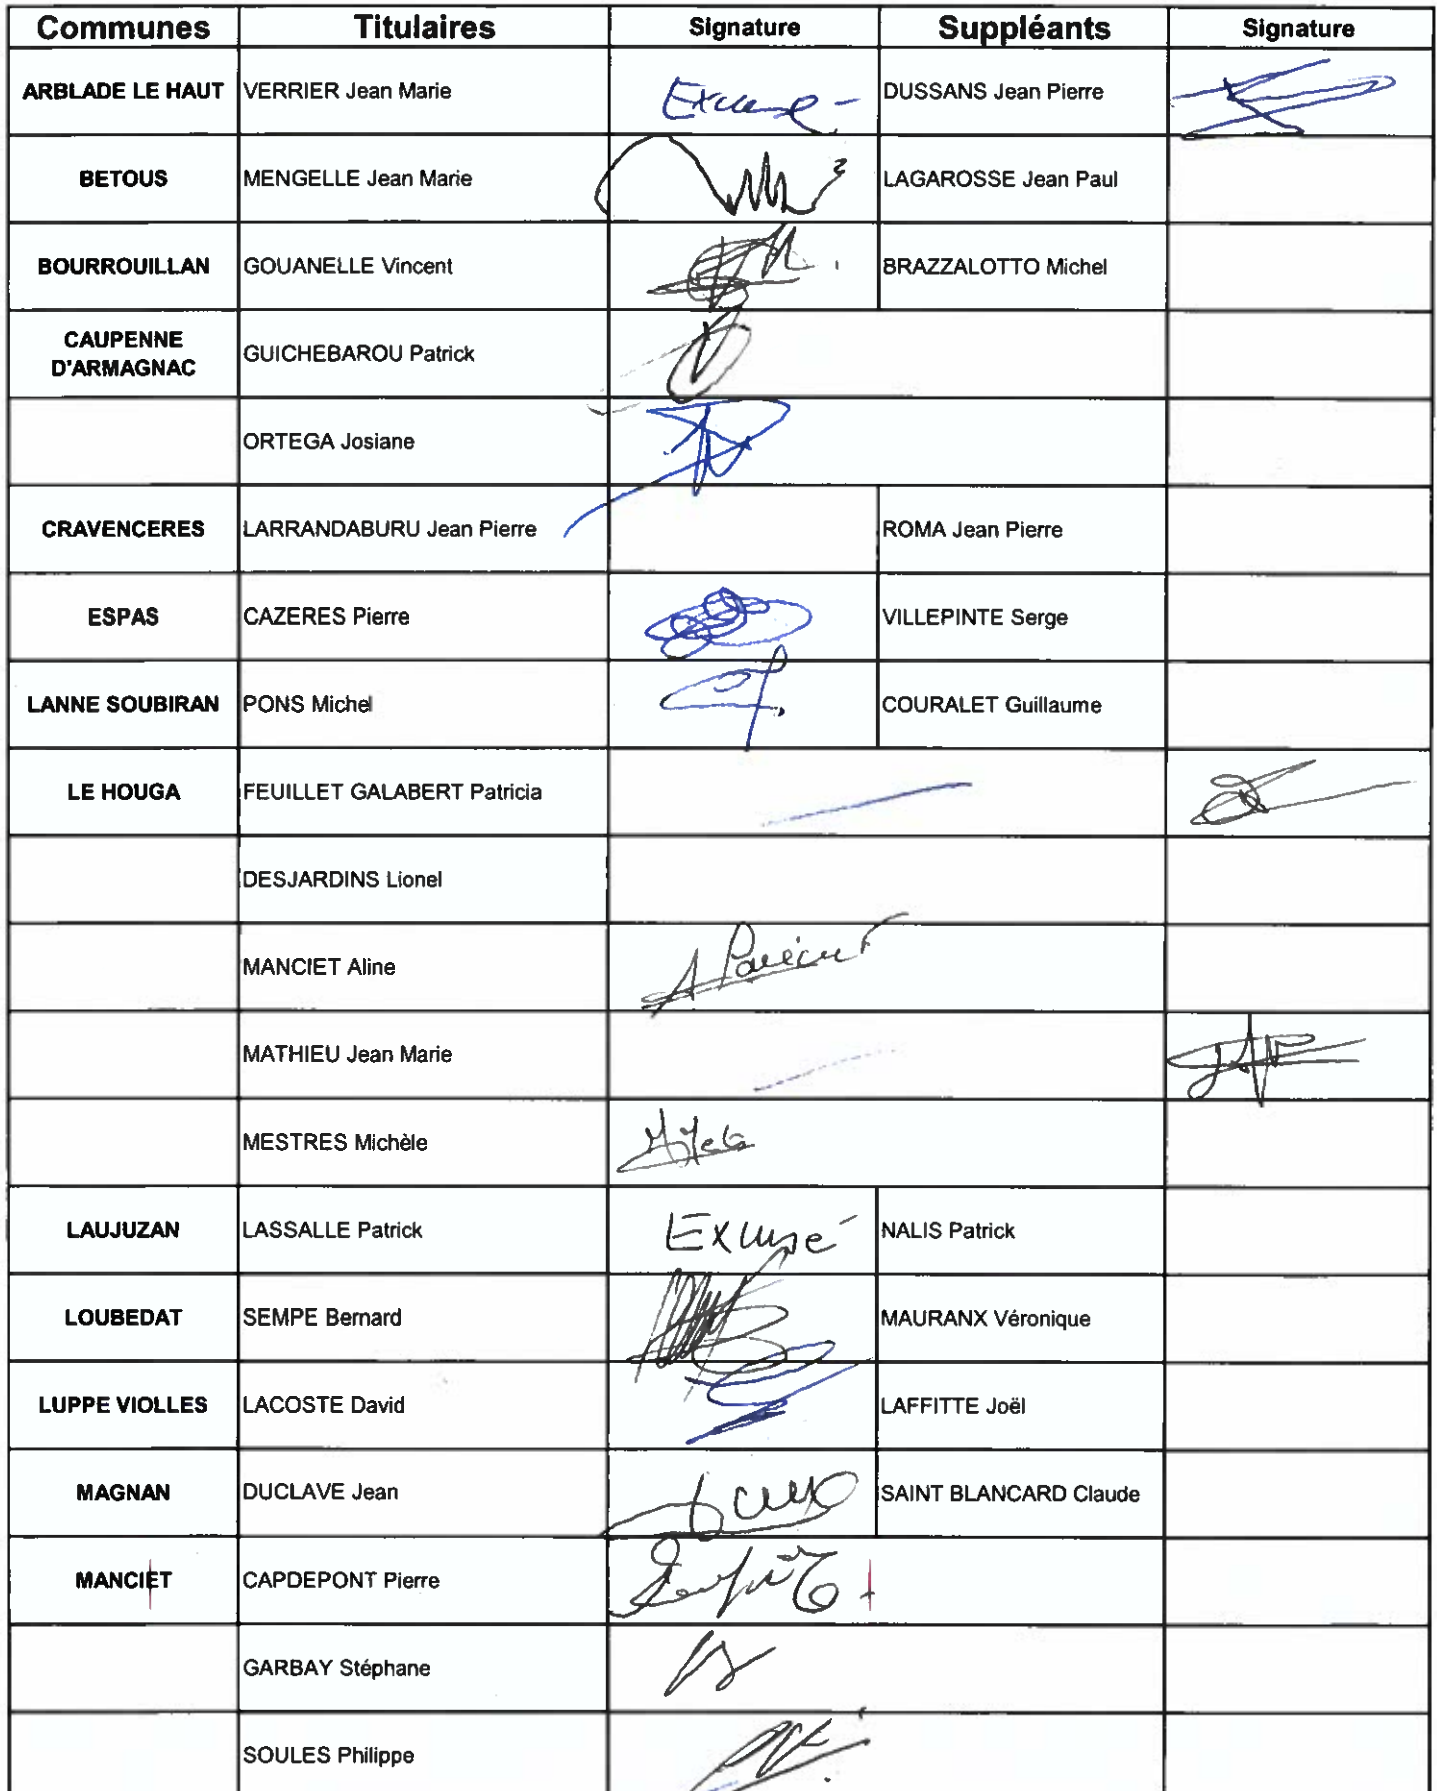 Communes Titulaires Signature Suppléants Signature
ARBLADE LE HAUT VERRIER Jean Marie DUSSANS Jean Pierre
BETOUS MENGELLE Jean Marie LAGAROSSE Jean Paul
BOURROUILLAN GOUANELLE Vincent BRAZZALOTTO Michel
CAUPENNE
D'ARMAGNAC GUICHEBAROU Patrick
ORTEGA Josiane
CRAVENCERES LARRANDABURU Jean Pierre ROMA Jean Pierre
ESPAS CAZERES Pierre VILLEPINTE Serge
LANNE SOUBIRAN PONS Michel COURALET Guillaume
LE HOUGA FEUILLET GALABERT Patricia
DESJARDINS Lionel
MANCIET Aline
MATHIEU Jean Marie
MESTRES Michèle
LAUJUZAN LASSALLE Patrick Excusé NALIS Patrick
LOUBEDAT SEMPE Bernard MAURANX Véronique
LUPPE VIOLLES LACOSTE David LAFFITTE Joël
MAGNAN DUCLAVE Jean SAINT BLANCARD Claude
MANCIET CAPDEPONT Pierre
GARBAY Stéphane
SOULES Philippe